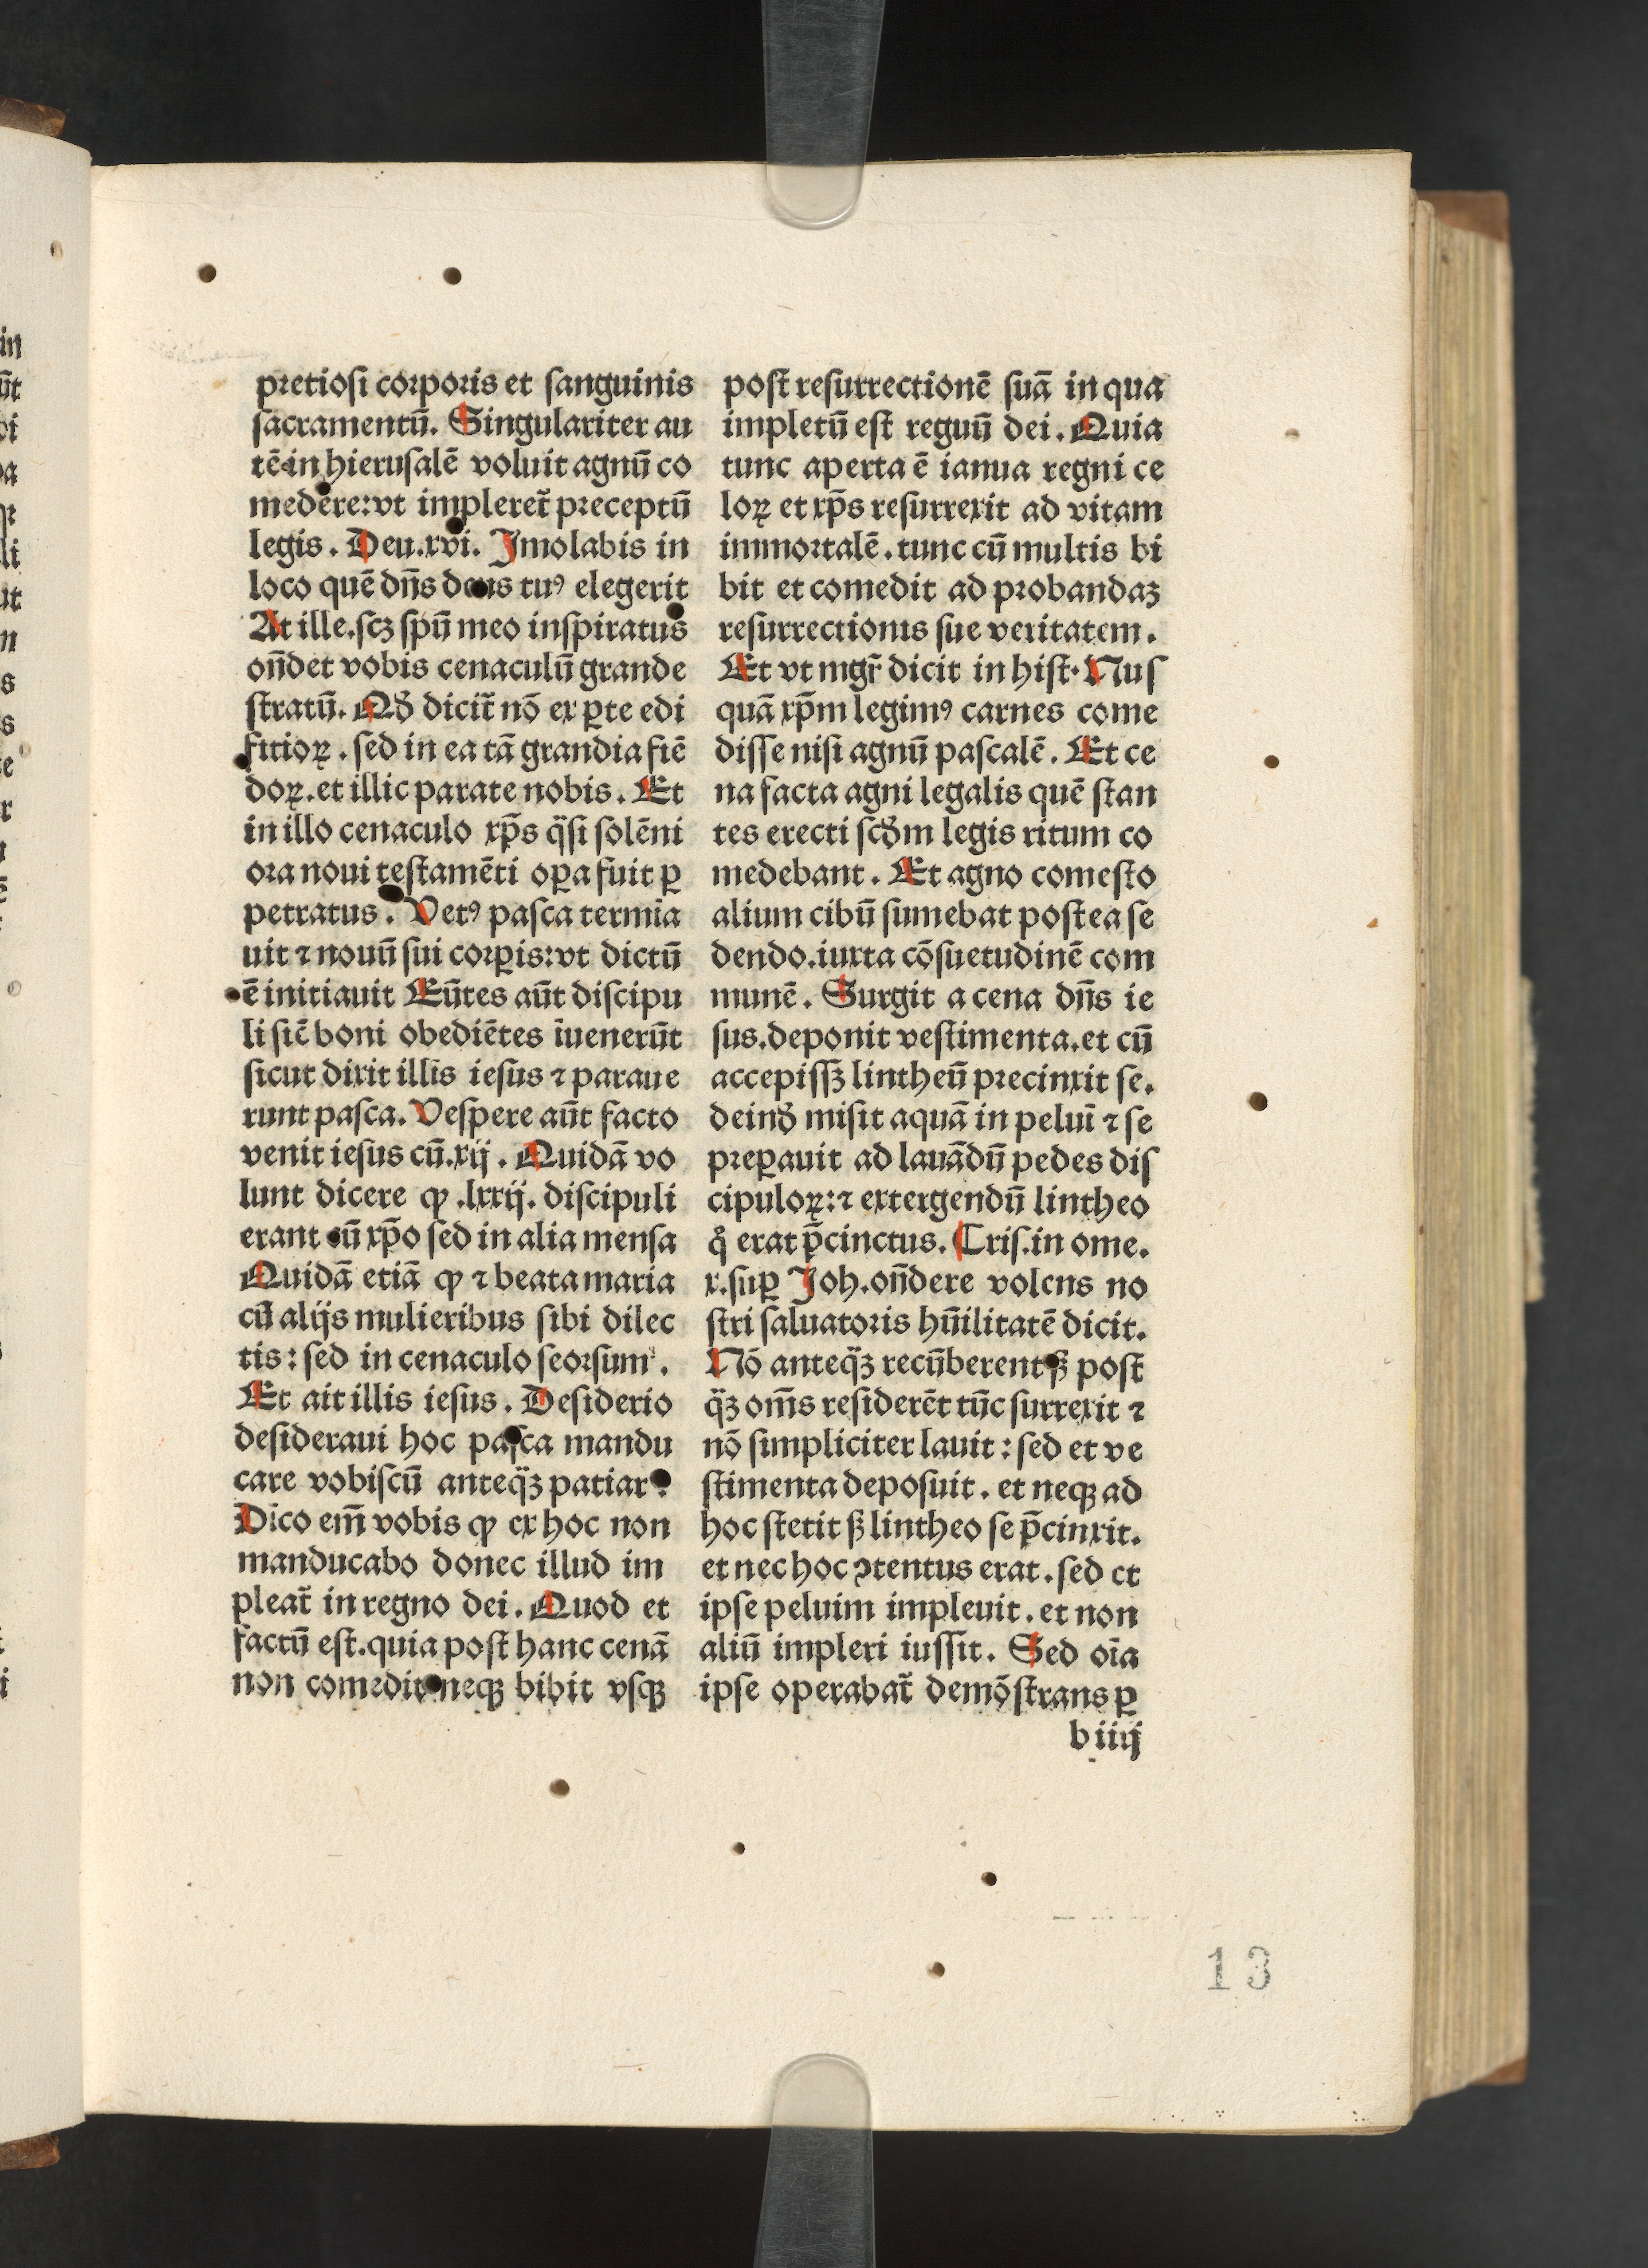 pretiosi corporis et sanguinis
sacramentū. Singulariter au
tē in hierusalē voluit agnū co
medere: vt impleret̄ preceptū
legis. Deu.xvi. Jmolabis in
loco quē dn̄s deus tuꝰ elegerit
At ille. scꝫ spū meo inspiratus
on̄det vobis cenaculū grande
stratū. Qđ dicit̄ nō ex ꝑte edi
fitioꝝ. sed in ea tā grandia fiē
doꝝ. et illic parate nobis. Et
in illo cenaculo xp̄s q̈si solēni
ora noui testamēti oꝑa fuit ꝑ
petratus. Vetꝰ pasca termīa
uit ⁊ nouū sui corꝑis: vt dictū
ē initiauit Eūtes aūt discipu
li siē boni obediētes īuenerūt
sicut dixit illis iesus ⁊ paraue
runt pasca. Vespere aūt facto
venit iesus cū.xij. Quidā vo
lunt dicere ꝙ .lxxij. discipuli
erant cū xp̄o sed in alia mensa
Quidā etiā ꝙ ⁊ beata maria
cū alijs mulieribus sibi dilec
tis: sed in cenaculo seorsum.
Et ait illis iesus. Desiderio
desideraui hoc pasca mandu
care vobiscū anteq̈ꝫ patiar.
Dico em̄ vobis ꝙ ex hoc non
manducabo donec illud im
pleat̄ in regno dei. Quod et
factū est. quia post hanc cenā
non comedit neqꝫ bibit vsqꝫ
post resurrectionē suā in qua
impletū est reguū dei. Quia
tunc aperta ē ianua regni ce
loꝝ et xp̄s resurrexit ad vitam
immortalē. tunc cū multis bi
bit et comedit ad probandaꝫ
resurrectionis sue veritatem.
Et vt mgr̄ dicit in hist. Nus
quā xp̄m legimꝰ carnes come
disse nisi agnū pascalē. Et ce
na facta agni legalis quē stan
tes erecti scđm legis ritum co
medebant. Et agno comesto
alium cibū sumebat postea se
dendo. iuxta cōsuetudinē com
munē. Surgit a cena dn̄s ie
sus. deponit vestimenta. et cū
accepissꝫ lintheū precinxit se.
deinđ misit aquā in peluī ⁊ se
preꝑauit ad lauādū pedes dis
cipuloꝝ: ⁊ extergendū lintheo
qͦ erat p̄cinctus. Cris. in ome.
x. suꝑ Joh. on̄dere volens no
stri saluatoris hūilitatē dicit.
Nō anteq̈ꝫ recūberent sꝫ post
q̈ꝫ om̄s residerēt tūc surrexit ⁊
nō simpliciter lauit: sed et ve
stimenta deposuit. et neqꝫ ad
hoc stetit sꝫ lintheo se p̄cinxit.
et nec hoc ꝯtentus erat. sed et
ipse peluim impleuit. et non
aliū impleri iussit. Sed oīa
ipse operabat̄ demōstrans ꝑ
b iiij
13